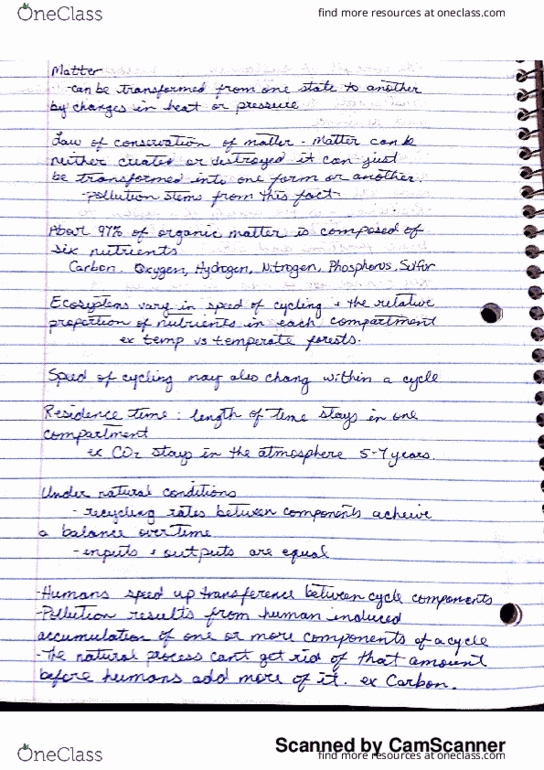 OneClass
find more resources at oneclass.com
Matter
-can be transformed from one state to another
by changes in heat or pressure
Law of conservation of matter - Matter can be
neither created or destroyed it can just
be transformed into one form or another
-pollution stems from this fact-
About 97% of organic matter is composed of
six nutrients
Carbon, Oxygen, Hydrogen, Nitrogen, Phosphorus, Sulfur
Ecosystems vary in speed of cycling + the relative
proportion of nutrients in each compartment
ex temp vs temperate forests.
Speed of cycling may also chang within a cycle
Residence time : length of time stays in one
compartment
ex CO2 stays in the atmosphere 5-7 years.
Under natural conditions
- recycling rates between components acheive
a balance over time
- inputs + outputs are equal
-Humans speed up transference between cycle components
-Pollution results from human induced
accumulation of one or more components of a cycle
-the natural process can't get rid of that amount
before humans add more of it. ex Carbon.
Scanned by CamScanner
OneClass
find more resources at oneclass.com